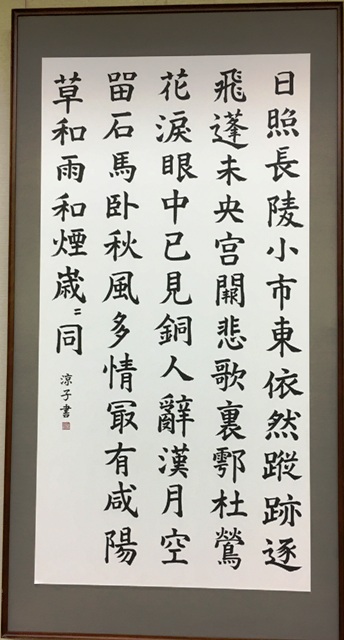 日照長陵小市東依然蹤跡逐
飛蓬未央宮闕悲歌裏鄠杜鶯
花淚眼中已見銅人辭漢月空
留石馬卧秋風多情冣有咸陽
草和雨和煙歳〻同
涼子書